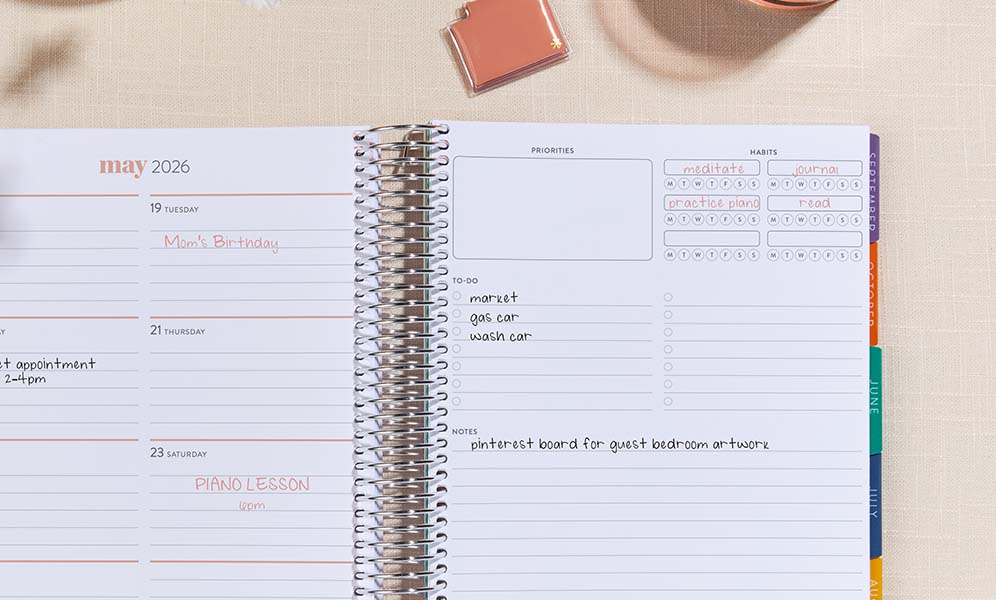 may 2026
19 TUESDAY
Mom's Birthday
21 THURSDAY
appointment
2-4pm
23 SATURDAY
PIANO LESSON
6pm
PRIORITIES
HABITS
meditate journal
M T W T F S S M T W T F S S
practice piano read
M T W T F S S M T W T F S S
M T W T F S S M T W T F S S
TO-DO
market
gas car
wash car
NOTES
pinterest board for guest bedroom artwork
SEPTEMBER
OCTOBER
JUNE
JULY